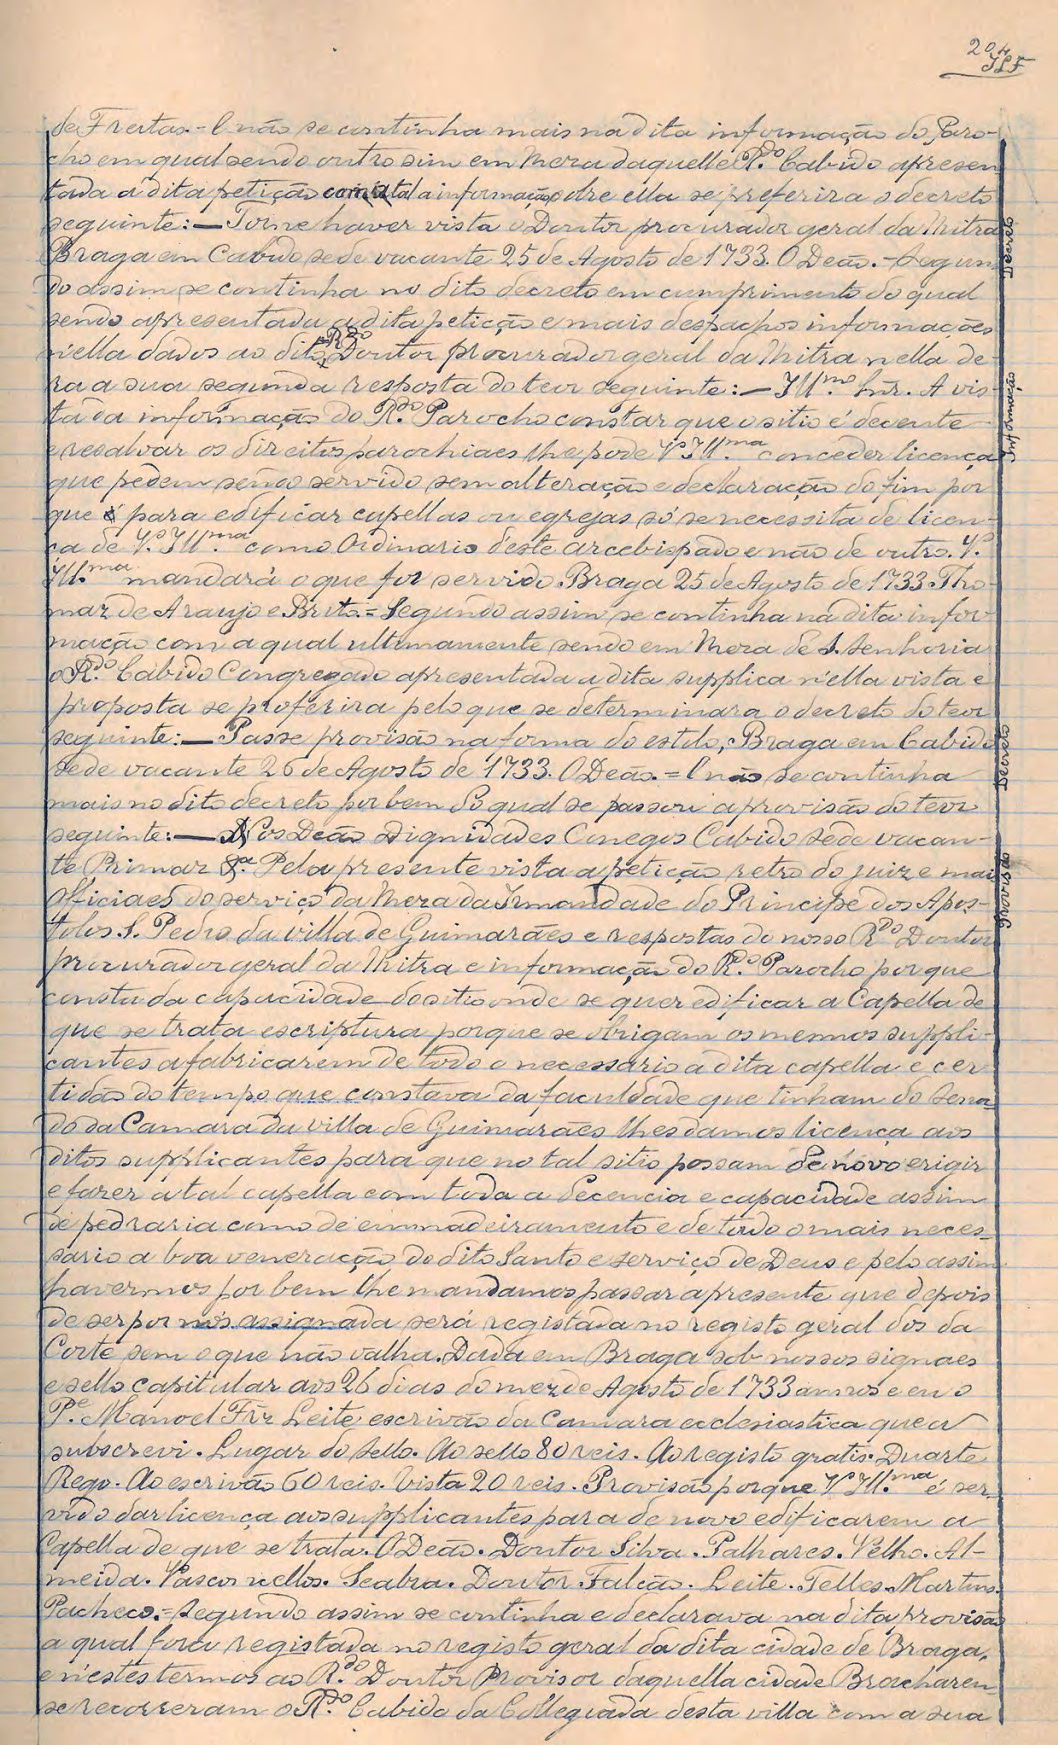 204
JLF
de Freitas.=E não se continha mais na dita informação do Paro-
cho em qual sendo outro sim em Meza daquelle R.do Cabido apresen
tada a dita petição com a tal a informação sobre ella se preferira o decreto
seguinte:—Torne haver vista o Doutor procurador geral da Mitra
Braga em Cabido sede vacante 25 de Agosto de 1733. O Deão.-Segun
do assim se continha no dito decreto em cumprimento do qual
sendo apresentada a dita petição e mais despachos informações
n'ella dados ao dito R.do Doutor procurador geral da Mitra nella de-
ra a sua segunda resposta do teor seguinte:—Ill.mo Snr. A vis-
ta da informação do R.do Parocho constar que o sitio é decente
e resalvar os direitos parochiaes lhe pode V.ª Ill.ma conceder licença
que pedem sendo servido sem alteração e declaração do fim por
que é para edificar capellas ou egrejas só se necessita de licen-
ça de V.ª Ill.ma como Ordinario d'este arcebispado e não de outro. V.ª
Ill.ma mandará o que for servido. Braga 25 de Agosto de 1733. Tho-
maz de Araujo e Brito.=Segundo assim se continha na dita infor-
mação com a qual ultimamente sendo em Meza de S. Senhoria
o R.do Cabido Congregado apresentada a dita supplica n'ella vista e
proposta se proferira pelo que se determinara o decreto do teor
seguinte:—Passe provisão na forma do estylo, Braga em Cabido
sede vacante 26 de Agosto de 1733. O Deão.=E não se continha
mais no dito decreto por bem do qual se passou a provisão do teor
seguinte:—Nos Deão Dignidades Conegos Cabido sede vacan-
te Primaz &.ª Pela presente vista a petição retro do juiz e mais
officiaes do serviço da Meza da Irmandade do Principe dos Apos-
tolos S. Pedro da villa de Guimarães e respostas do nosso R.do Doutor
procurador geral da Mitra e informação do R.do Parocho porque
consta da capacidade do sitio onde se quer edificar a Capella de
que se trata escriptura porque se obrigam os mesmos suppli-
cantes a fabricarem de todo o necessario a dita capella e cer
tidão do tempo que constava da faculdade que tinham do Sena-
do da Camara da villa de Guimarães lhes damos licença aos
ditos supplicantes para que no tal sitio possam de novo erigir
e fazer a tal capella com toda a decencia e capacidade assim
de pedraria como de emmadeiramento e de todo o mais neces-
sario a boa veneração do dito Santo e serviço de Deus e pelo assim
havermos por bem lhe mandamos passar a presente que depois
de ser por nós assignada será registada no registo geral dos da
Corte sem o que não valha. Dada em Braga sob nossos signaes
e sello capitular aos 26 dias do mez de Agosto de 1733 annos e eu o
P.e Manoel Frz Leite escrivão da Camara ecclesiastica que a
subscrevi. Lugar do sello. Ao sello 80 reis. Ao registo gratis. Duarte
Rego. Ao escrivão 60 reis. Vista 20 reis. Provisão porque V.ª Ill.ma é ser-
vido dar licença aos supplicantes para de novo edificarem a
Capella de que se trata. O Deão. Doutor Silva. Palhares. Velho. Al-
meida. Vasconcellos. Seabra. Doutor Falcão. Leite. Telles. Martins.
Pacheco.=Segundo assim se continha e declarava na dita provisão
a qual fora registada no registo geral da dita cidade de Braga,
e n'estes termos ao R.do Doutor Provisor daquella cidade Bracharen
se recorreram o R.do Cabido da Collegiada desta villa com a sua
Decreto
Informação
Decreto
Provisão